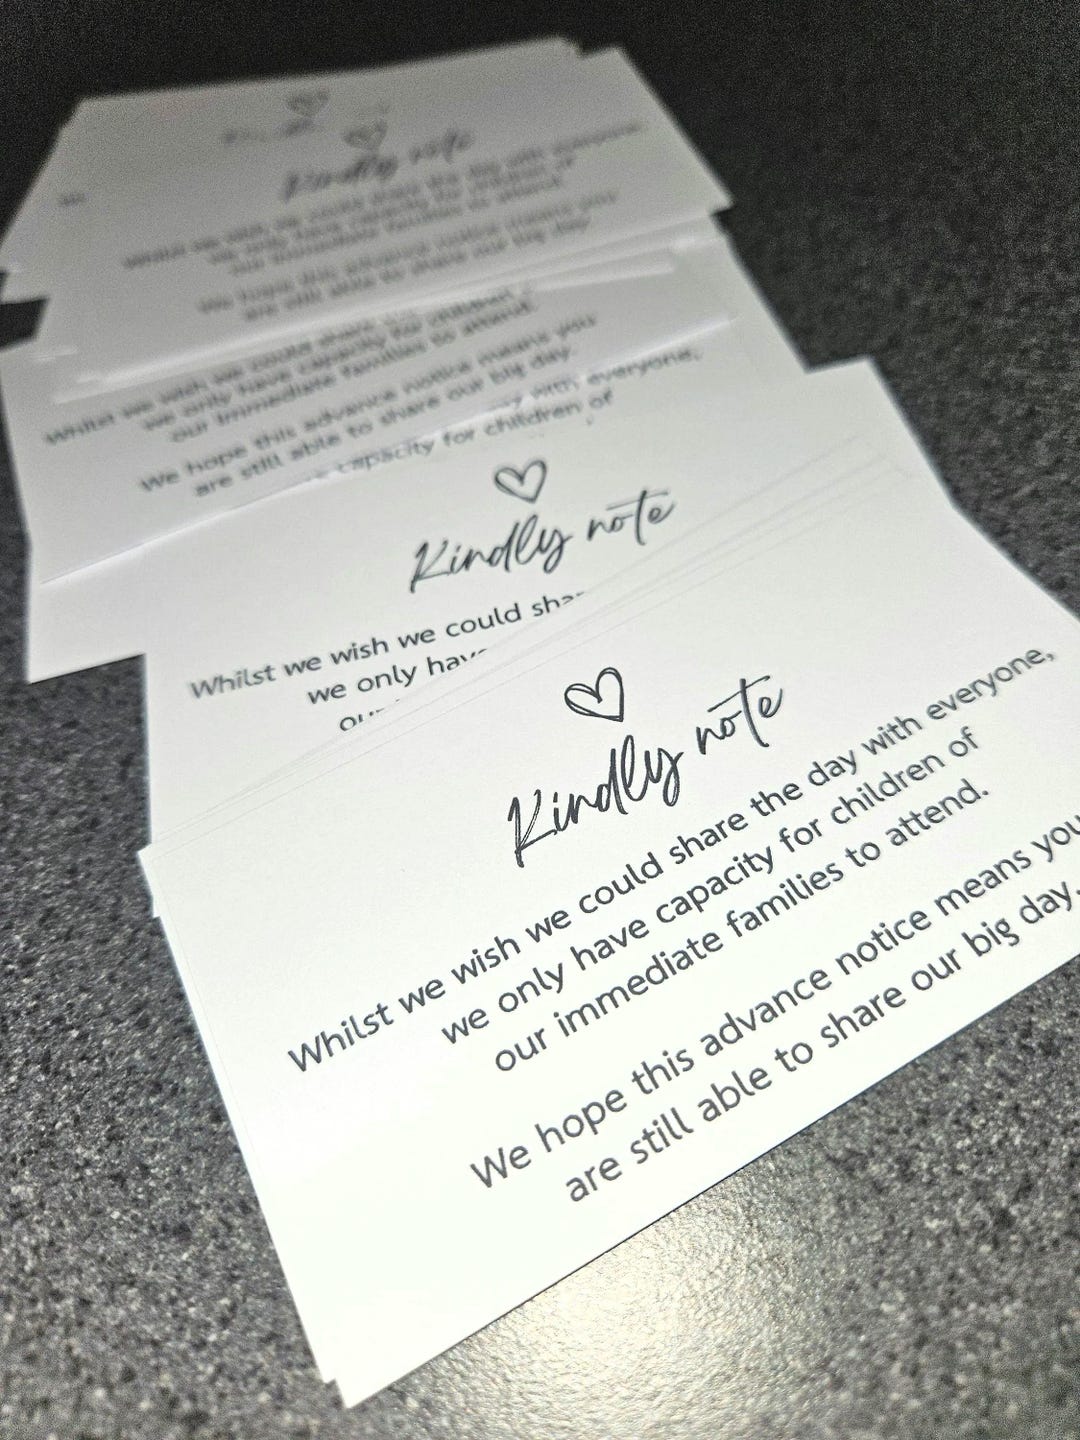 Kindly note
Whilst we wish we could share the day with everyone,
we only have capacity for children of
our immediate families to attend.
We hope this advance notice means you
are still able to share our big day
Whilst we wish we could share
we only have capacity for children
our immediate families to attend.
We hope this advance notice means you
are still able to share our big day.
with everyone,
capacity for children of
Kindly note
Whilst we wish we could
we only
Kindly note
Whilst we wish we could share the day with everyone,
we only have capacity for children of
our immediate families to attend.
We hope this advance notice means you
are still able to share our big day.